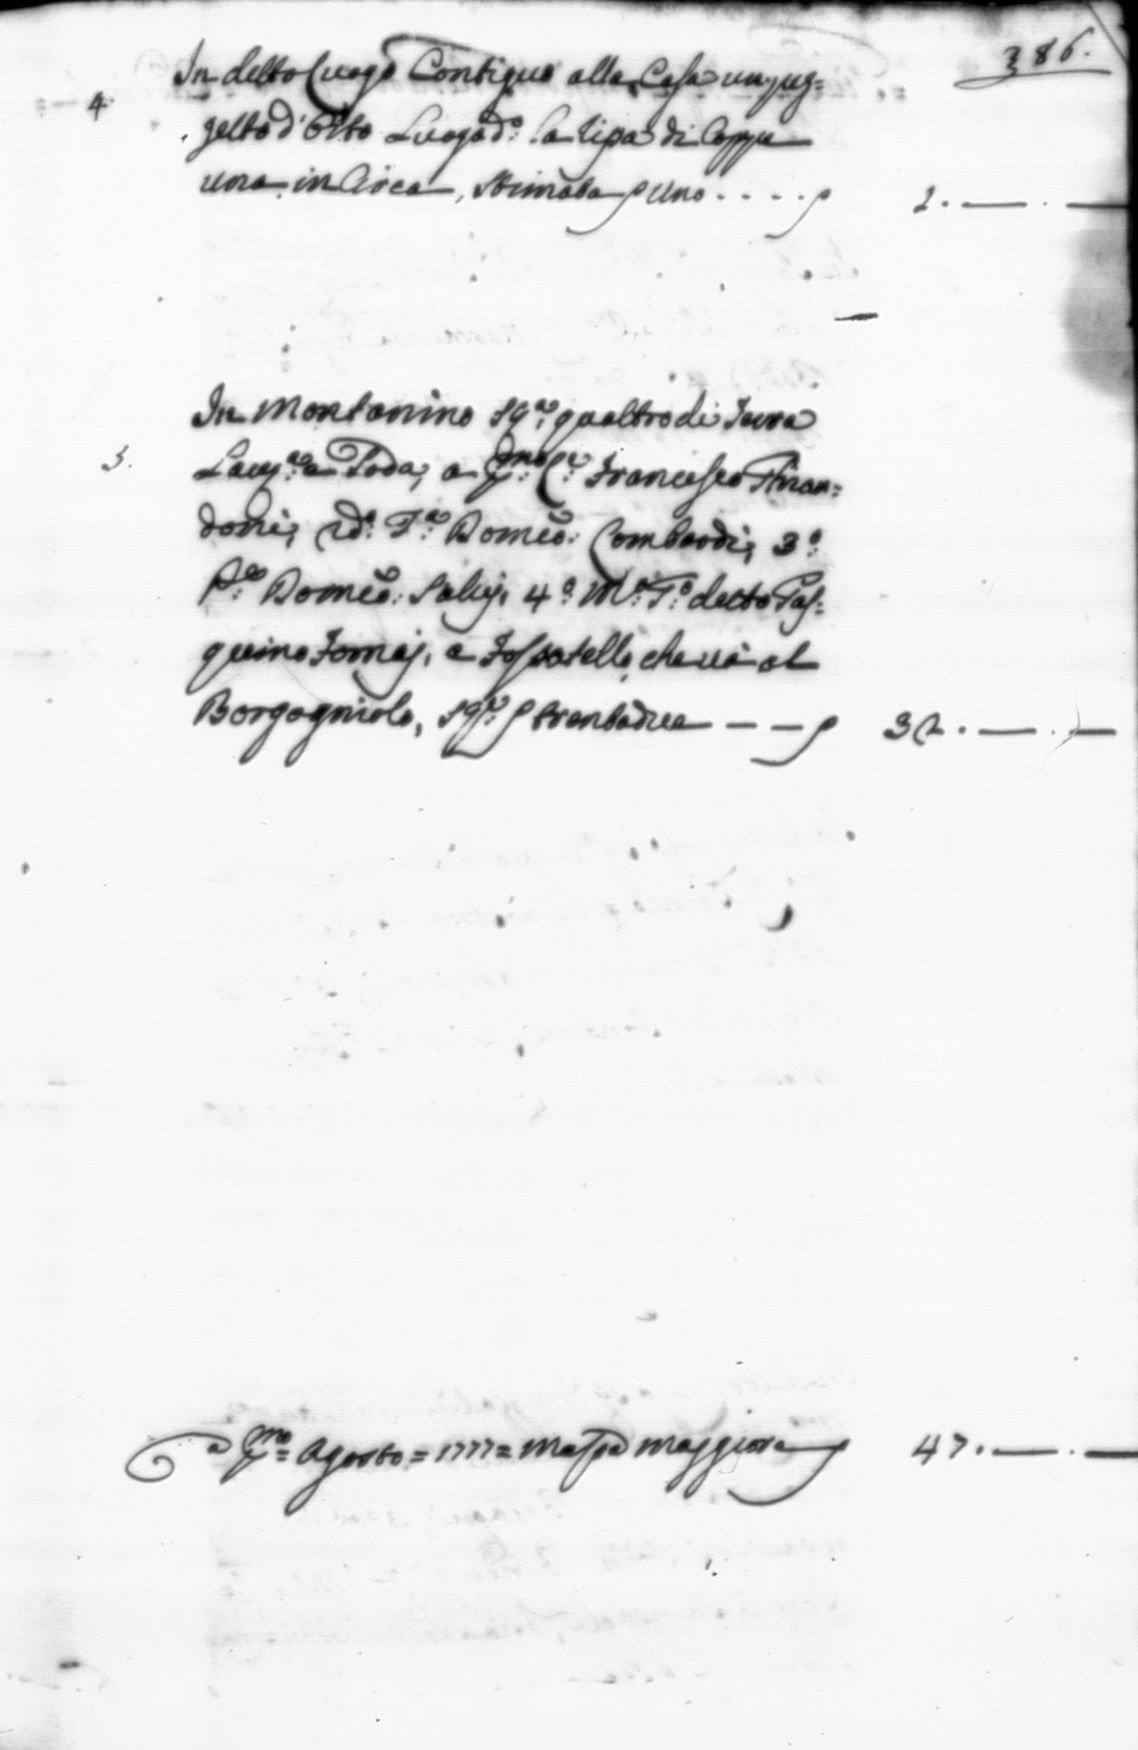 386.
4. In detto Luogo Contiguo alla Casa un pez=
zetto d'Orto Luogo d.o la ripa di Coppa
una in Circa, stimata p uno - - - - 1. — . —
5. In Montanino stª. quattro di Terra
Lavª. e Soda, a pmo Cr. Francesco Finan=
doni, 2do. Fr. Domco. Lombardi, 3o.
Pr. Domco. Salvi, 4o. Mo. Fo. detto Pas=
quino Tomasi, e Fossatello, che va al
Borgogniolo, stª. p trentadue — — 32. — . —
a pmo = Agosto = 1777 = Massa maggiore 47. — . —